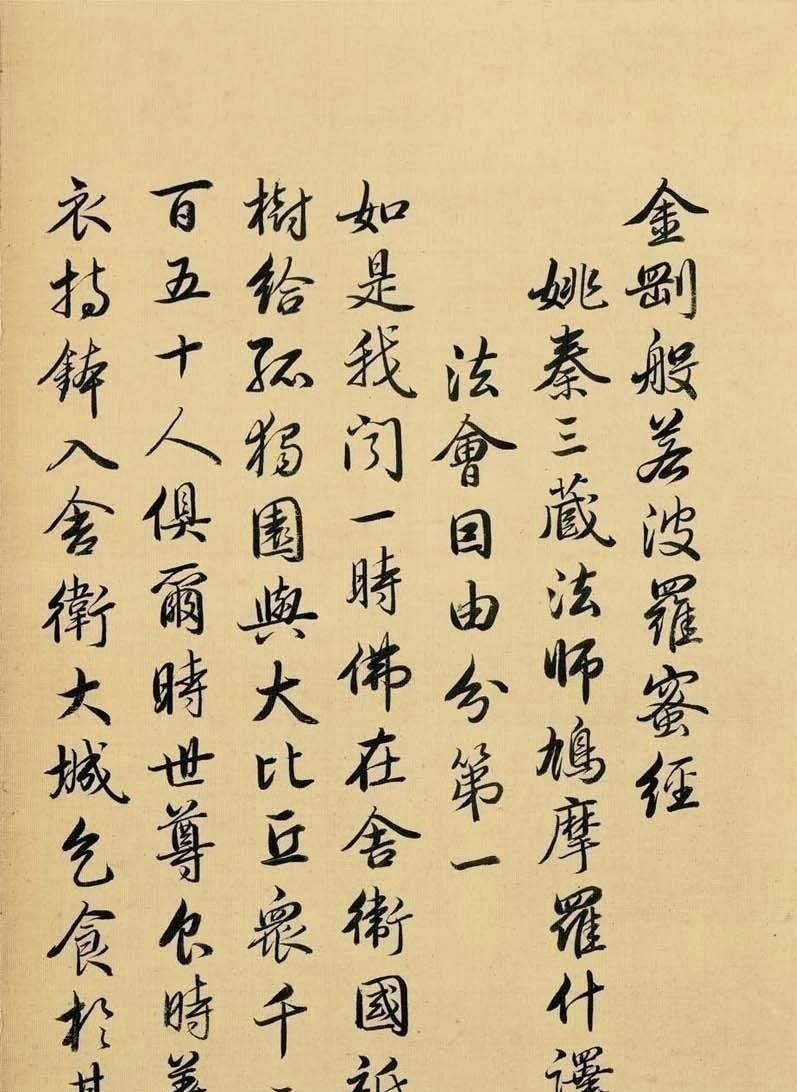 金剛般若波羅蜜經
姚秦三藏法師鳩摩羅什譯
法會因由分第一
如是我聞一時佛在舍衛國祇
樹給孤獨園與大比丘眾千
百五十人俱爾時世尊食時著
衣持鉢入舍衛大城乞食於其